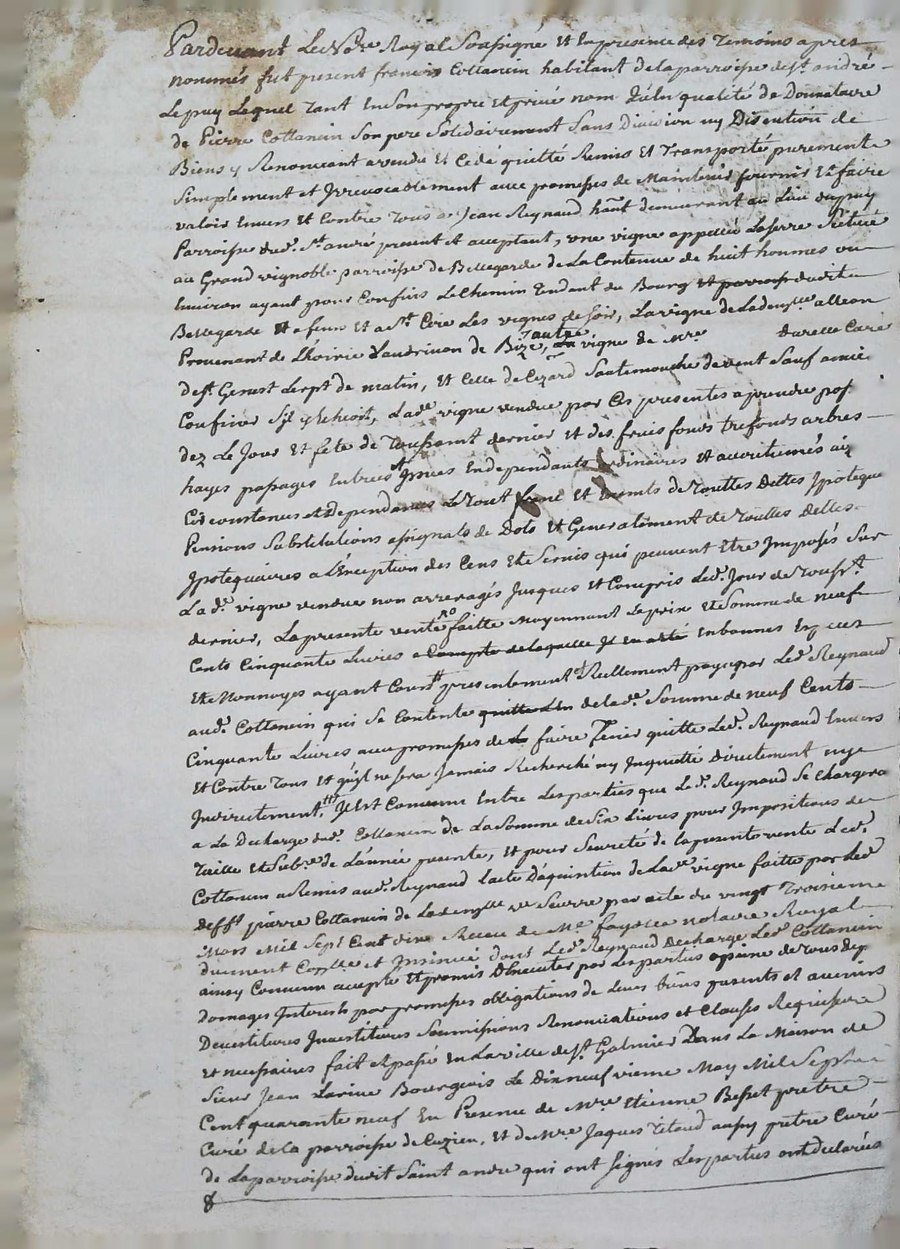 Pardevant Le No.re Royal Soussigné Et En presence des Temoins apres
nommés fut present françois Collancin habitant de la parroisse de st. andré
Le puy Lequel tant En Son propre Et privé nom qu'en qualité de Donnataire
de Pierre Collancin Son pere Solidairement Sans Division ny Discution de
Biens y Renoncant a vendu Et Cedé quitté Remis Et Transporté purement
Simplement et Irrevocablement avec promesses de Maintenir fournir Et faire
valoir Envers Et Contre Tous a Jean Reynaud ha.nt demeurant au Lieu du puy
Parroisse dud. St. andré present et aceptant, une vigne appellée Laserre Scituée
au Grand vignoble parroisse de Bellegarde de La Contenue de huit hommes ou
Environ ayant pour Confins Le Chemin Tendant du Bourg et dudit
Bellegarde a et a st. Cire Les vignes de Soir, La vigne de Lad.
Provenant de L'hoirie de Bize, autre vigne de M.re
de st. Genest de matin, Et Celle de Cezard devent Sauf a mieux
Confiner Sy y Echeoit, Lad.e vigne vendue par Ces presentes a prendre pos
dez Le Jour Et fête de Toussaint dernier Et des fruis fonds trefonds arbres
hayes passages Entrées Issues En dependants ordinaires Et accoutumés aix
Circonstances et Dependances Le Tout franc Et Exempts de Touttes Dettes Ipoteque
Pensions Substitutions assignats de Dots Et Generalement de Touttes Dettes
Ipotequaires a L'Exception des Cens Et Servis qui peuvent Etre Imposés Sur
Lad.e vigne vendue non arreragés Jusques Et Compris Led. Jour de Touss.t
dernier, La presente vente faitte moyennant Le prix Et Somme de neuf
Cents Cinquante Livres a Compte de laquelle En bonnes Especes
Et Monnoyes ayant Cours presentement Reellement payé par Led. Reynaud
aud. Collancin qui Se Contente de lad.e Somme de neuf Cents
Cinquante Livres avec promesses de faire Tenir quitte Led. Reynaud Envers
Et Contre Tous Et qu'il ne Sera Jamais Recherché ny Inquietté directement ny
Indirectement, Il Est Convenu Entre Les parties que Le d. Reynaud Se Chargera
a La Decharge dud. Collancin de La Somme de Six Livres pour Impositions de
Taille Et de L'année presente, Et pour Seureté de la presente vente Led.
Collancin a Remis aud. Reynaud L'acte D'aquisition de Lad.e vigne faitte par Led.
deff.t pierre Collancin de Lad. par acte du vingt Troisieme
Mars Mil Sept Cent Receu de M.e notaire Royal
duement et Insinué dont Led. Reynaud Decharge Led. Collancin
ainsy Convenu accepté Et promis D'Executer par Les parties a peine de Tous dep.
domages Interests par promesses obligations de leurs biens presents Et avenirs
Devestitures Investitures Soumissions Renonciations et Clauses Requises
et necessaires fait Et passé En La ville de st. Galmier Dans La Maison de
Sieur Jean Larive Bourgeois Le Dixneufvieme May Mil Sept
Cent quarante neuf En Presence de M.re Etienne Besset pretre
Curé de la parroisse de Cuzieu, Et de M.re Jaques Titaud aussy pretre Curé
de La parroisse dudit Saint andre qui ont Signés Les parties ont declarées